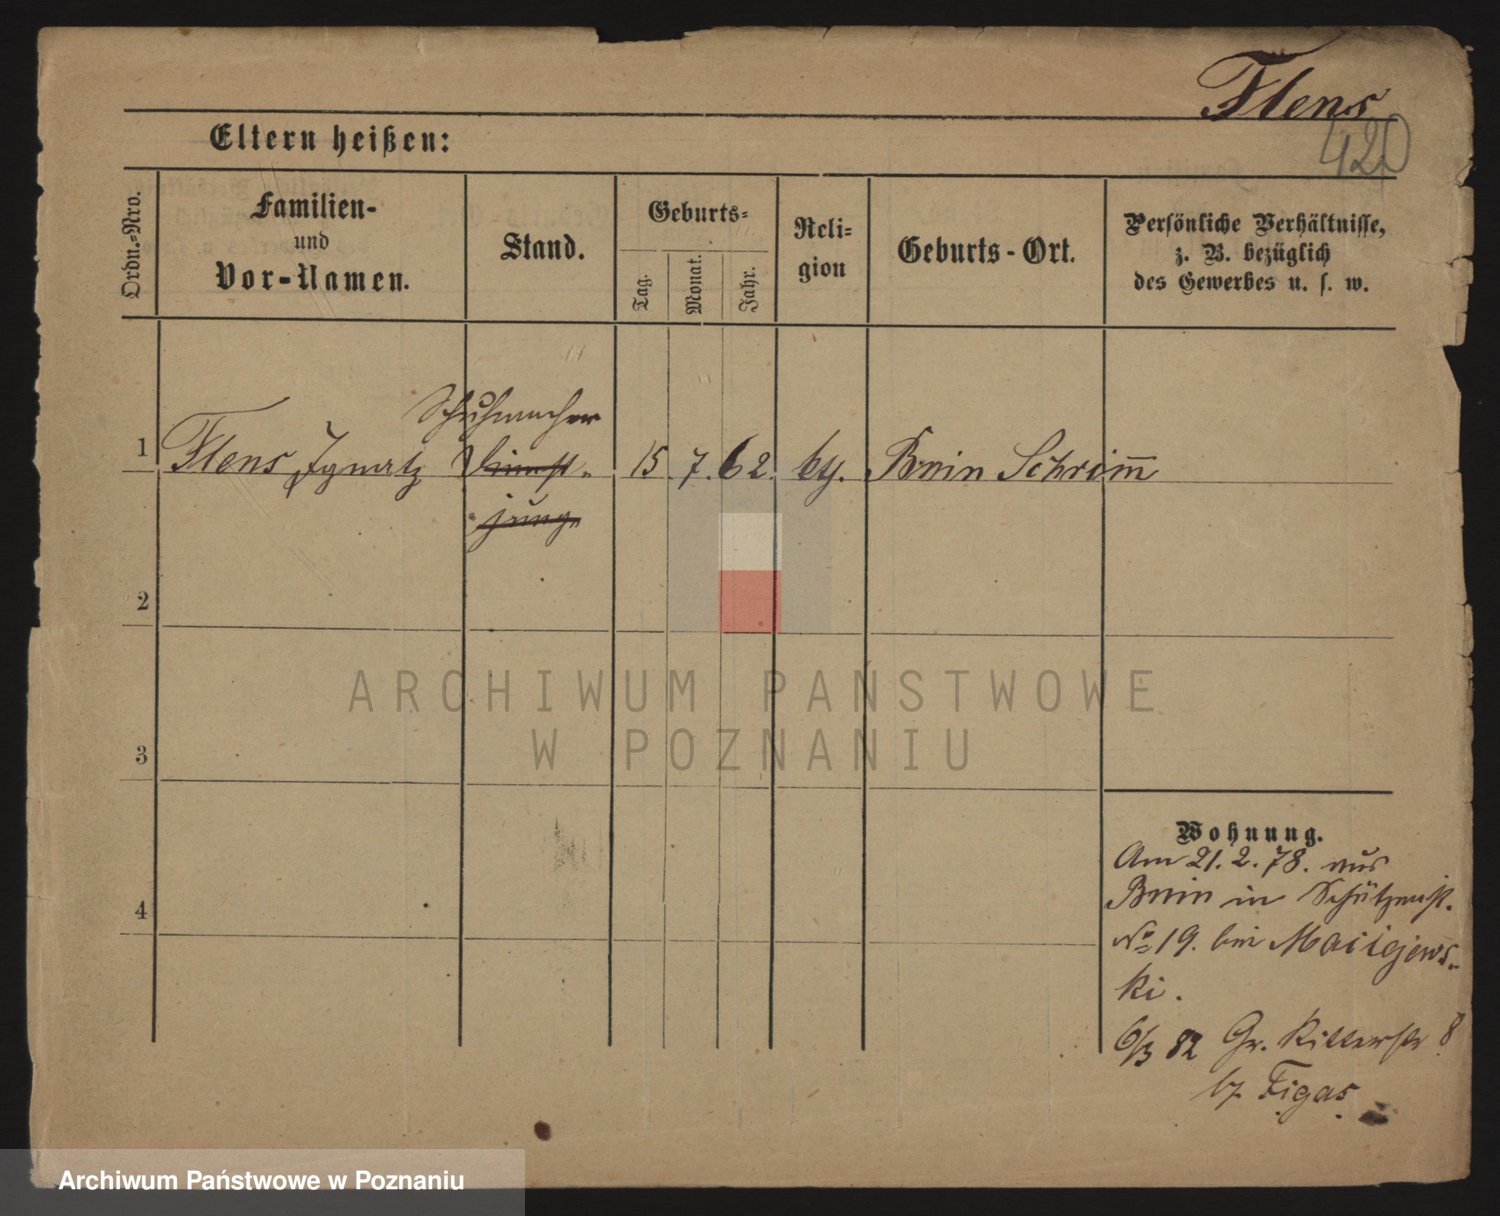 Flens
420
Eltern heißen:
Ordn.-Nro.
Familien-
und
Vor-Namen.
Stand.
Geburts-
Tag.
Monat.
Jahr.
Reli-
gion
Geburts-Ort.
Persönliche Verhältnisse,
z. B. bezüglich
des Gewerbes u. s. w.
Schuhmacher
1 Flens, Ignatz Dienst- 15 7. 62. Bnin Schrim̅
jung.
2
ARCHIWUM PAŃSTWOWE
W POZNANIU
3
Wohnung.
Am 21. 2. 78. aus
Bnin in Schützenst.
No 19. bei Maciejews-
ki.
6/3 82 Gr. Ritterstr 8
bz. Figas.
4
Archiwum Państwowe w Poznaniu